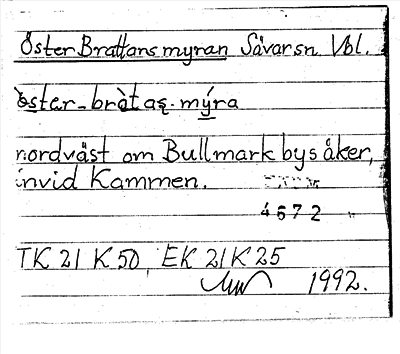 Öster Brattans myran Sävar sn. Vbl.
öster-bràtas-mýra
nordväst om Bullmark bys åker,
invid Kammen.
4672
TK 21 K 50, EK 21 K 25
1992.